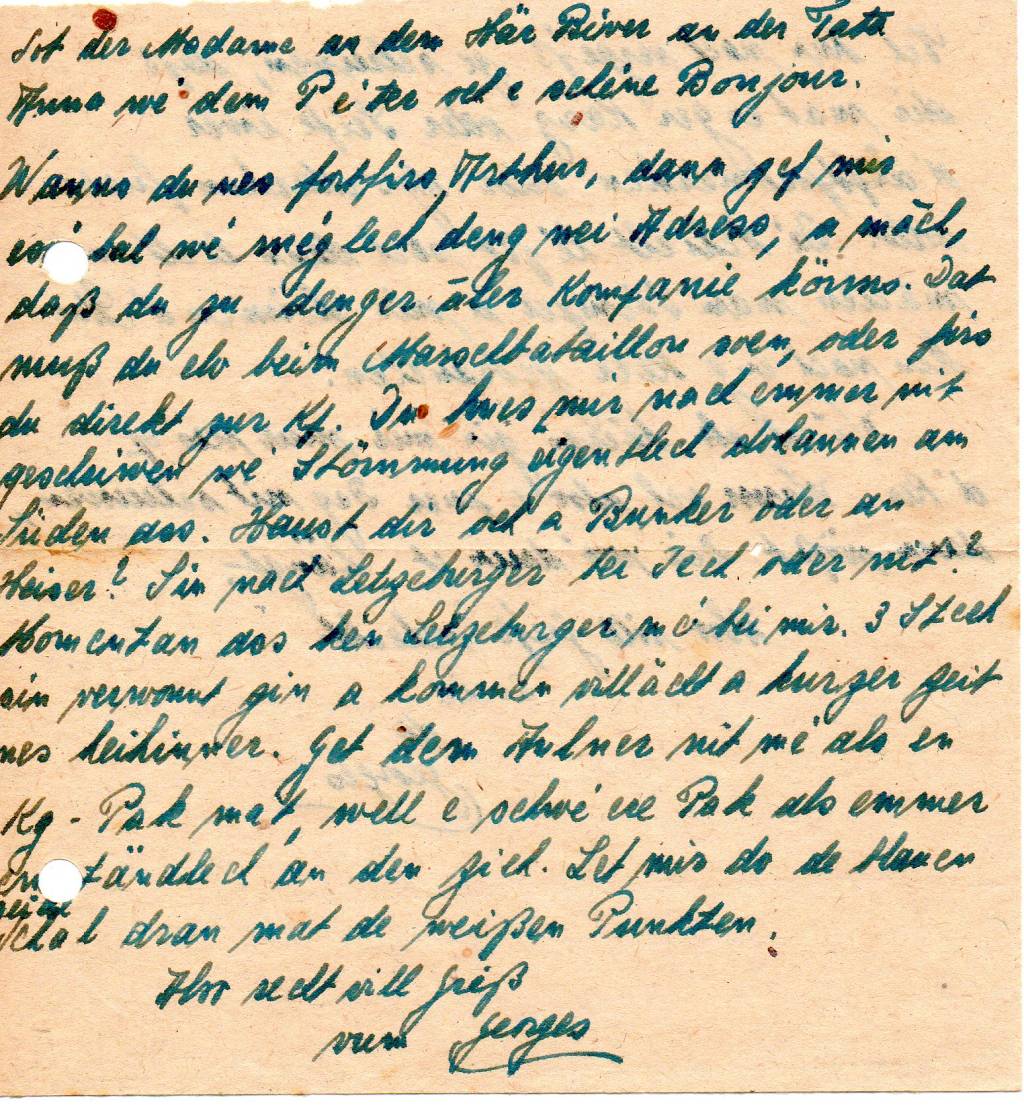 Sot der Madame an dem Här Biver an der Tata
Anna wé dem Péter och e schéine Bonjour.
Wanns du nes fortfirs, Arthur, dann gef mir
esó bal wé méglech deng nei Adress, a mäch,
daß du zu denger aler Kompanie könns. Dat
muß du elo beim Marschbataillon soen, oder firs
du direkt zur Kp. Du hues mir nach emmer nit
geschriwen wé Stömmung eigentlech dohannen am
Süden das. Haust dir och a Bunker oder an
Heiser? Sin nach Letzeburger bei Iech oder nit?
Momentan das ken Letzeburger mé bei mir. 3 Steck
sin verwonnt gin a kommen villächt a kurzer Zeit
nes heihinner. Get dem Hulner nit mé als en
Kg - Pak mat, well e schwéere Pak als emmer
ständlech an den Zich. Let mir do de blauen
Schal dran mat de weißen Punkten.
Also recht vill Gréiß
vum Georges